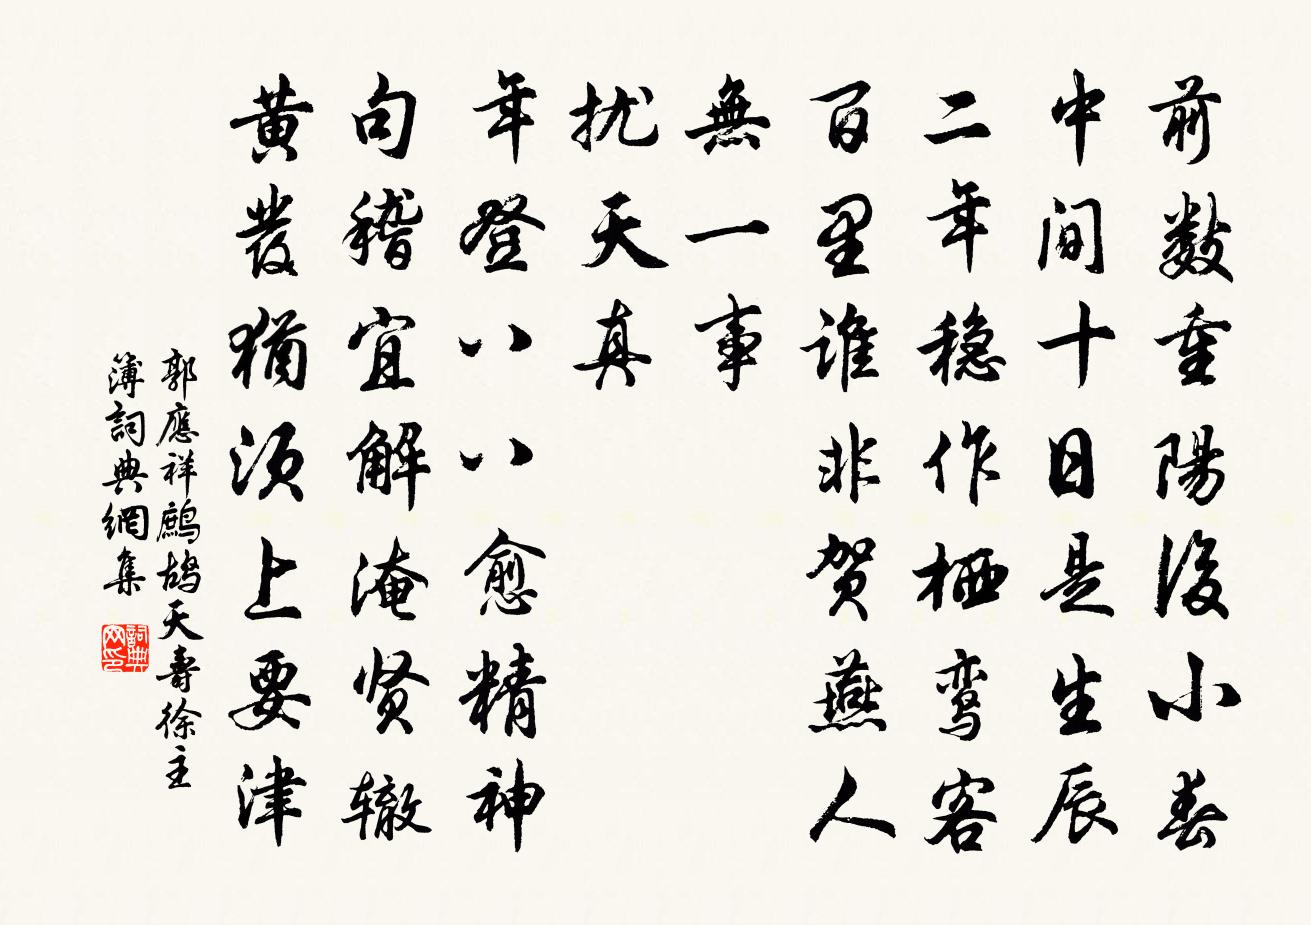 前數重陽後小春
中间十日是生辰
二年稳作栖鸾客
百里谁非贺燕人
無一事
扰天真
年登八八愈精神
句稽宜解淹贤辙
黄發猶须上要津
郭應祥鷓鴣天壽徐主
簿詞典網集
詞典网印